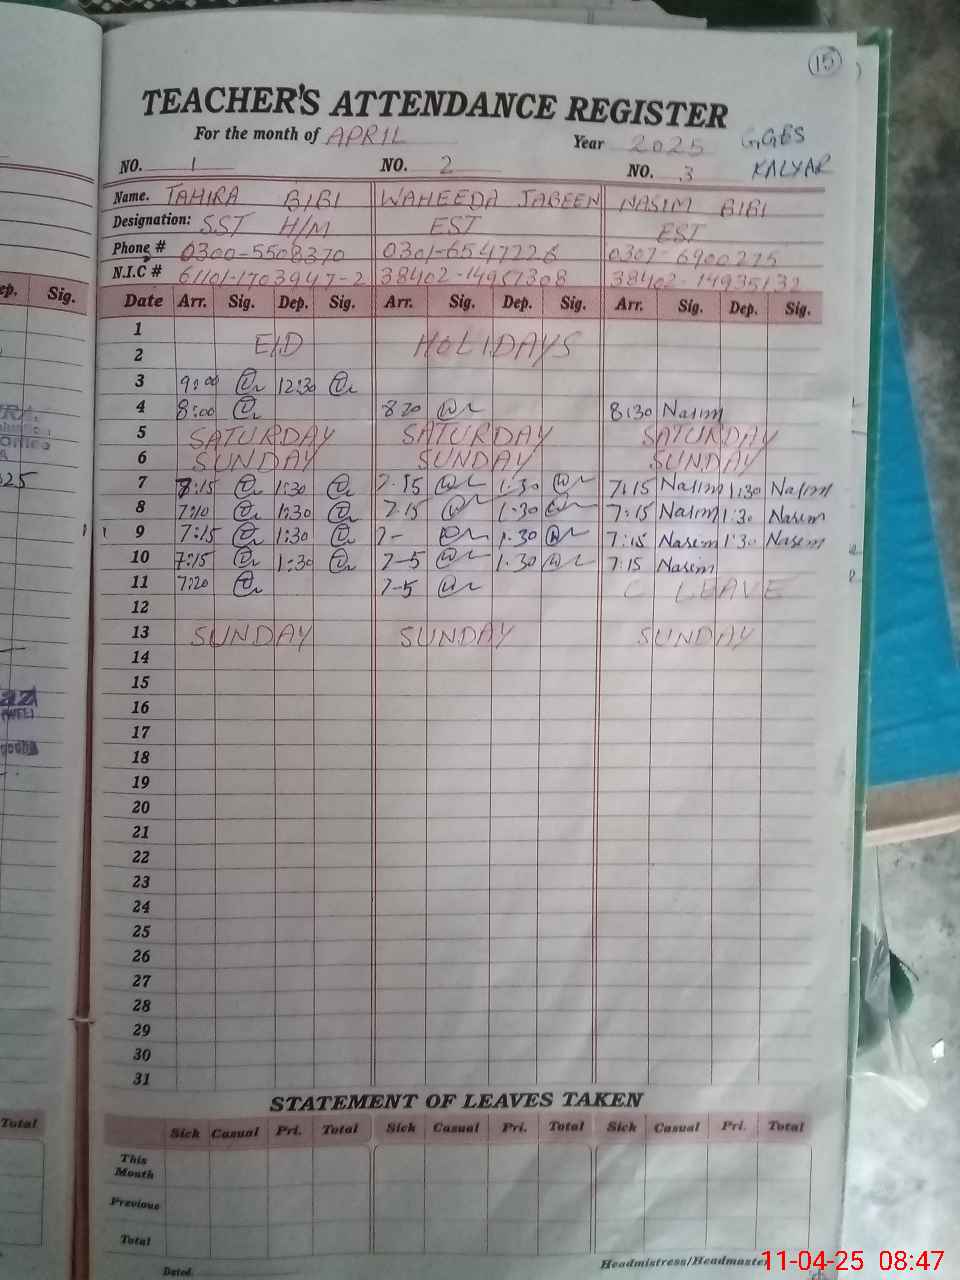 15
TEACHER'S ATTENDANCE REGISTER
For the month of APRIL Year 2025 G.GES
NO. 1 NO. 2 NO. 3 KALYAR
Name. TAHIRA BIBI WAHEEDA JABEEN NASIM BIBI
Designation: SST H/M EST EST
Phone # 0300-5508370 0301-6547226 0307-6900275
N.I.C # 61101-1703947-2 38402-1496 1308 38402-14935132
Date Arr. Sig. Dep. Sig. Arr. Sig. Dep. Sig. Arr. Sig. Dep. Sig.
1
2 EID HOLIDAYS
3 9:00 12:30
4 8:00 820 8:30 Nasim
5 SATURDAY SATURDAY SATURDAY
6 SUNDAY SUNDAY SUNDAY
7 7:15 1:30 7-15 1:30 7:15 Nasim 1:30 Nasim
8 7:10 1:30 7.15 1.30 7:15 Nasim 1:30 Nasem
9 7:15 1:30 7- 1.30 7:15 Nasem 1:30 Nasem
10 7:15 1:30 7-5 1.30 7:15 Nasem
11 7:20 7-5 C LEAVE
12
13 SUNDAY SUNDAY SUNDAY
14
15
16
17
18
19
20
21
22
23
24
25
26
27
28
29
30
31
STATEMENT OF LEAVES TAKEN
Sick Casual Pri. Total Sick Casual Pri. Total Sick Casual Pri. Total
This Month
Previous
Total
Dated Headmistress/Headmaster
11-04-25 08:47
ep. Sig.
Total